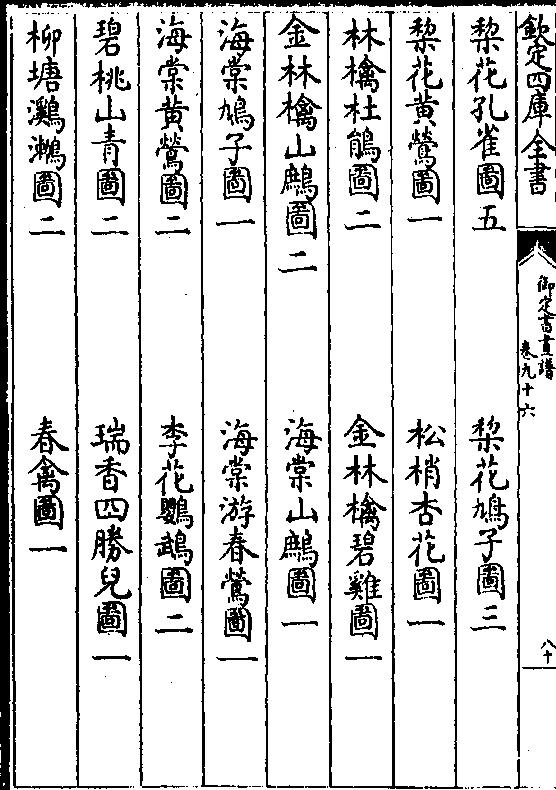 欽定四庫全書
御定書畫譜
卷九十六
八十
梨花孔雀圖五 梨花鳩子圖三
梨花黄鶯圖一 松梢杏花圖一
林檎杜鵑圖二 金林檎碧雞圖一
金林檎山鷓圖二 海棠山鷓圖一
海棠鳩子圖一 海棠游春鶯圖一
海棠黄鶯圖二 李花鸚鵡圖二
碧桃山青圖二 瑞香四勝兒圖一
柳塘鸂𪆟圖二 春禽圖一